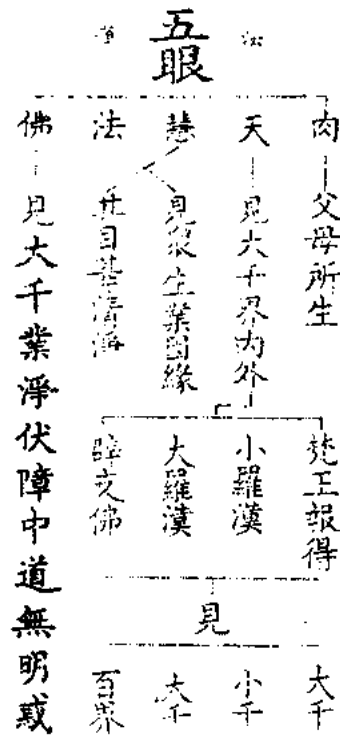 五眼
肉
父母所生
天
見大千界內外
慧
見衆生業因緣
法
其目甚清淨
佛
見大千業淨伏障中道無明或
梵王報得
小羅漢
大羅漢
辟支佛
見
大千
小千
大千
百界